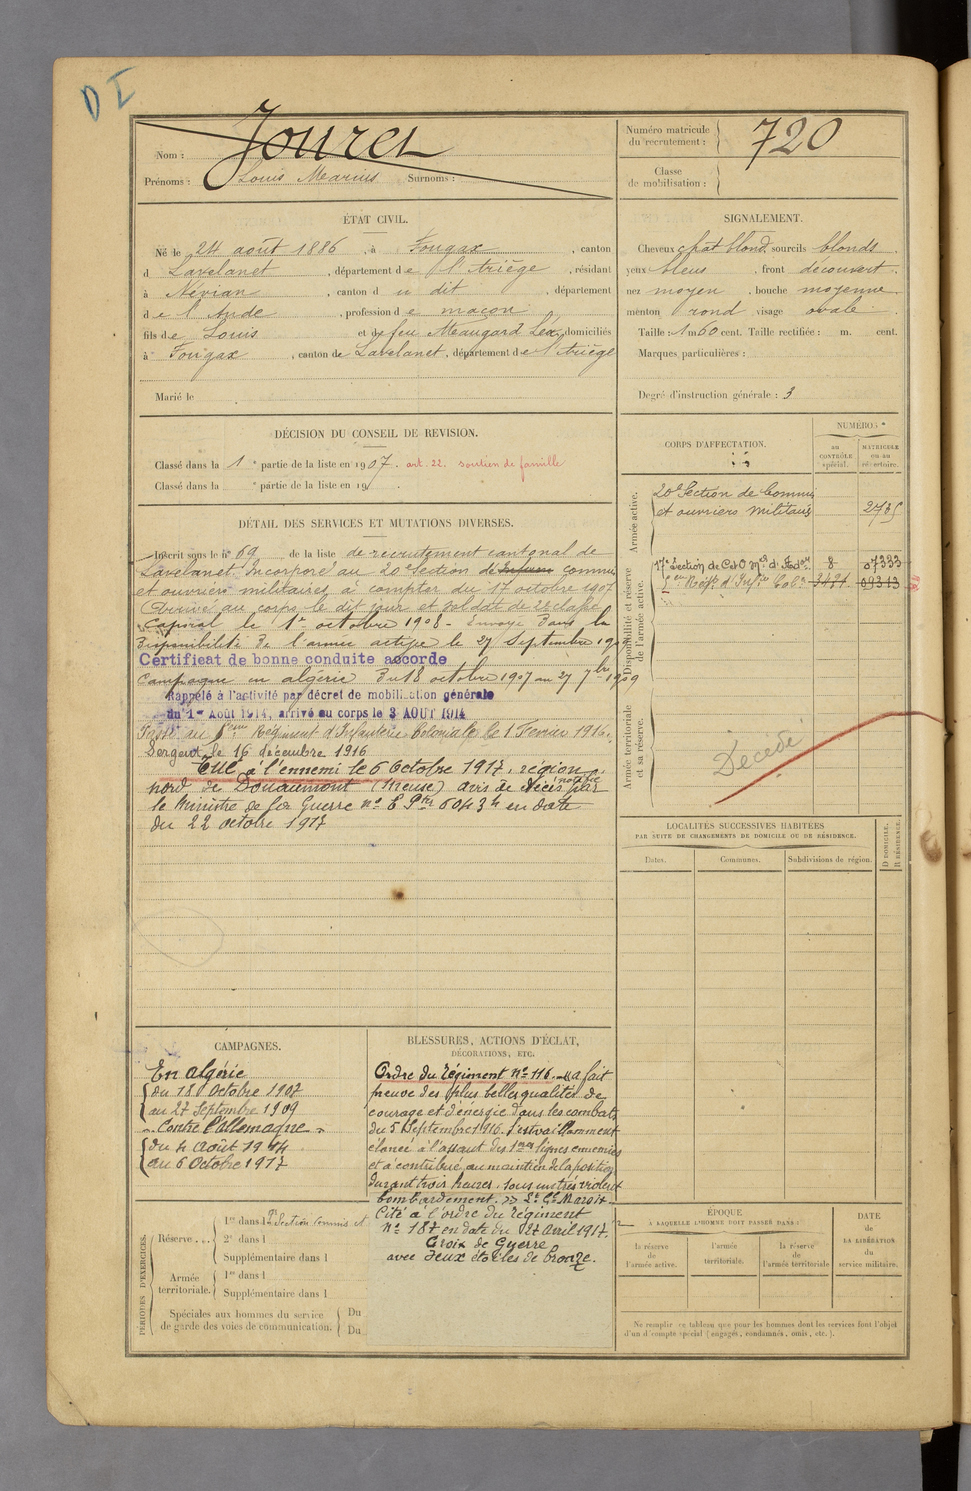 D I
Nom : Jouret
Prénoms : Louis Marius Surnoms :
Numéro matricule du recrutement : 720
Classe de mobilisation :
ÉTAT CIVIL.
Né le 24 août 1886, à Fougax, canton
d Lavelanet, département de l'Ariège, résidant
à Névian, canton du dit, département
de l'Aude, profession de maçon
fils de Louis et de feu Meaugard Lea, domiciliés
à Fougax, canton de Lavelanet, département de l'Ariège
Marié le
SIGNALEMENT.
Cheveux chat blond. sourcils blonds.
yeux bleus, front découvert.
nez moyen, bouche moyenne
menton rond visage ovale.
Taille : 1 m 60 cent. Taille rectifiée : m. cent.
Marques particulières :
Degré d'instruction générale : 3
DÉCISION DU CONSEIL DE REVISION.
Classé dans la 1e partie de la liste en 1907. art. 22. soutien de famille
Classé dans la e partie de la liste en 19 .
DÉTAIL DES SERVICES ET MUTATIONS DIVERSES.
Inscrit sous le n° 69 de la liste de recrutement cantonal de
Lavelanet. Incorporé au 20e Section de commis
et ouvriers militaires à compter du 17 octobre 1907
Arrivé au corps le dit jour et soldat de 2e classe
Caporal le 1er octobre 1908 - Envoyé dans la
disponibilité de l'armée active le 27 Septembre 1909
Certificat de bonne conduite accordé
Campagne en algérie du 18 octobre 1907 au 27 7bre 1909
Rappelé à l'activité par décret de mobilisation générale
du 1er Août 1914, arrivé au corps le 3 AOUT 1914
Passé au Régiment d'Infanterie Coloniale le 1 Fevrier 1916.
Sergent le 16 décembre 1916
Tué à l'ennemi le 6 Octobre 1917, région
nord de Douaumont (Meuse) avis de décès notifié par
le Ministre de la Guerre n° E. P. 6043 en date
du 22 octobre 1917
CORPS D'AFFECTATION.
NUMÉROS
au CONTRÔLE spécial.
MATRICULE ou au répertoire.
Armée active.
20e Section de Commis
et ouvriers militaires 2735
Disponibilité et réserve de l'armée active.
17e Section de C et O 8 07333
Régt d'Infrie Colle 09313
Armée territoriale et sa réserve.
Décédé
LOCALITÉS SUCCESSIVES HABITÉES
PAR SUITE DE CHANGEMENTS DE DOMICILE OU DE RÉSIDENCE.
Dates. Communes. Subdivisions de région.
D DOMICILE. R RÉSIDENCE.
CAMPAGNES.
En algérie
du 18 Octobre 1907
au 27 Septembre 1909
Contre l'Allemagne
du 4 Août 1914
au 6 Octobre 1917
BLESSURES, ACTIONS D'ÉCLAT,
DÉCORATIONS, ETC.
Ordre du régiment n° 116. « a fait
preuve des plus belles qualités de
courage et d'énergie dans les combats
du 5 Septembre 1916. s'est vaillamment
élancé à l'assaut des 1ères lignes ennemies
et a contribué au maintien de la position
durant trois heures, sous un très violent
bombardement. » Lt Cl Maroix
Cité à l'ordre du régiment
N° 187 en date du 27 Avril 1917.
Croix de Guerre
avec deux étoiles de bronze.
PÉRIODES D'EXERCICES.
Réserve ... 1re dans la Section Commis
2e dans l
Supplémentaire dans l
Armée territoriale. 1re dans l
Supplémentaire dans l
Spéciales aux hommes du service Du
de garde des voies de communication. Du
ÉPOQUE
A LAQUELLE L'HOMME DOIT PASSER DANS :
la réserve de l'armée active.
l'armée territoriale.
la réserve de l'armée territoriale
DATE de LA LIBÉRATION du service militaire.
Ne remplir ce tableau que pour les hommes dont les services font l'objet
d'un décompte spécial (engagés, condamnés, omis, etc.).